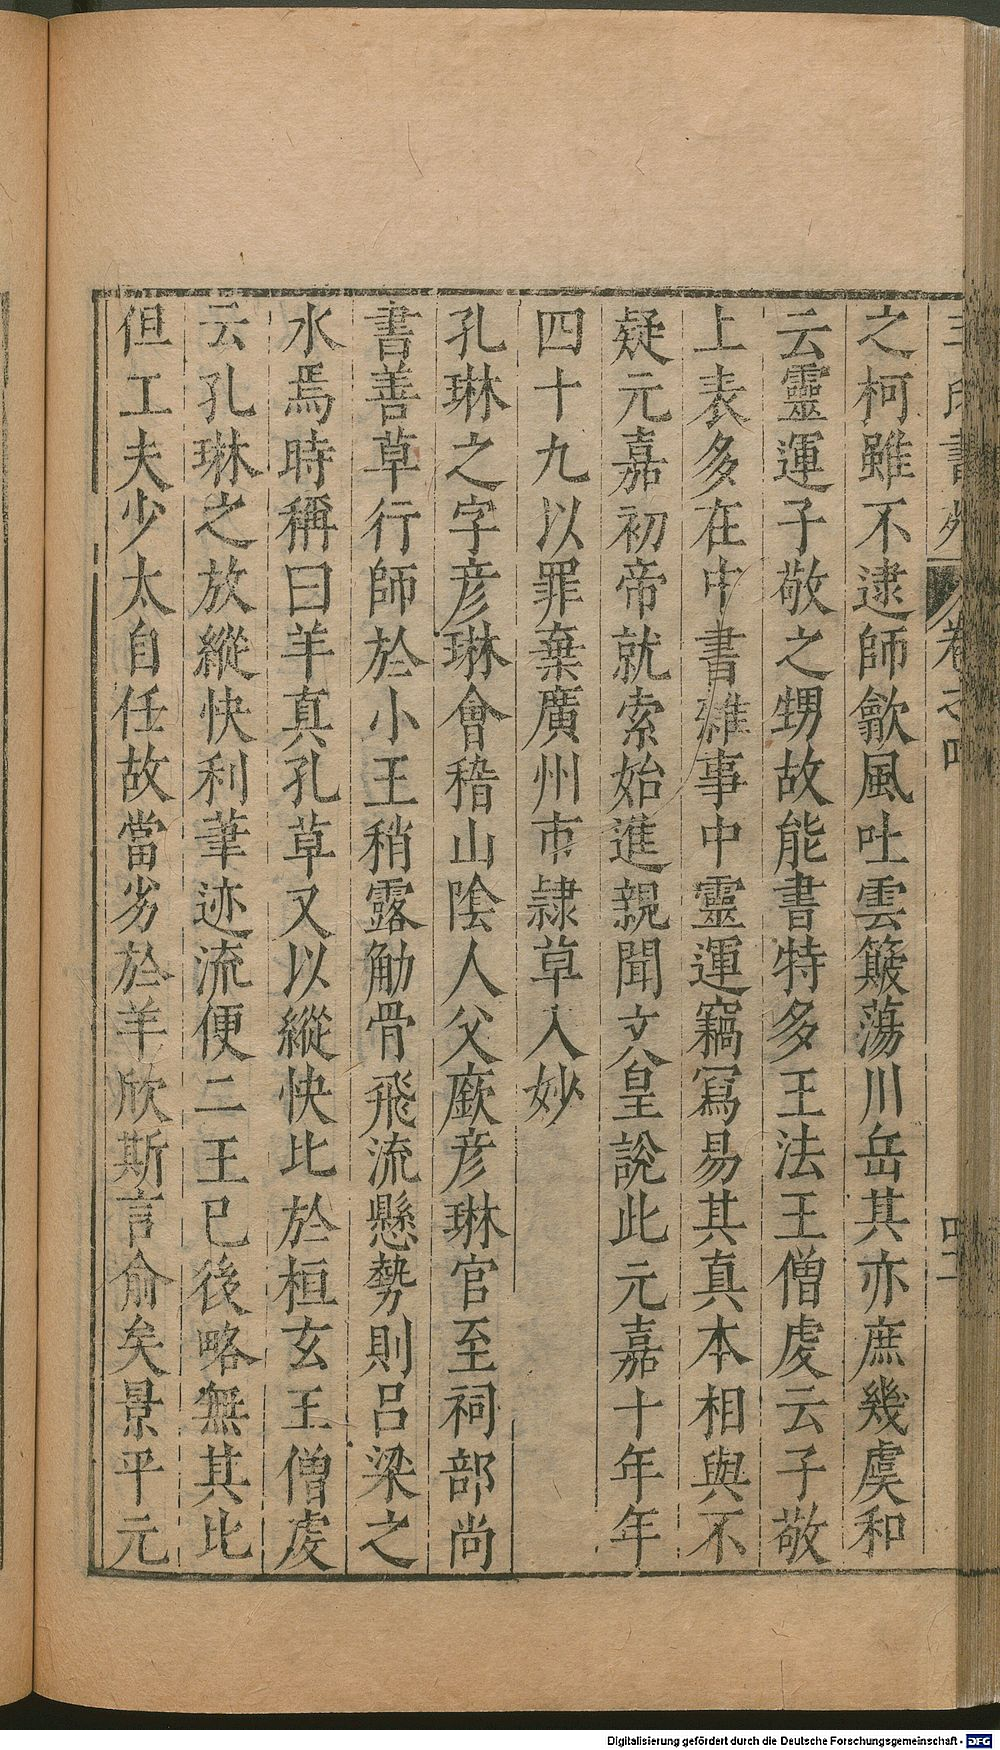 王氏書苑 卷之四
之柯雖不逮師歙風吐雲簸蕩川岳其亦庶幾虞和
云靈運子敬之甥故能書特多王法王僧虔云子敬
上表多在中書雜事中靈運竊寫易其真本相與不
疑元嘉初帝就索始進親聞文皇說此元嘉十年年
四十九以罪棄廣州市隷草入妙
孔琳之字彦琳會稽山陰人父厥彦琳官至祠部尚
書善草行師於小王稍露觔骨飛流懸勢則呂梁之
水焉時稱曰羊真孔草又以縱快比於桓玄王僧虔
云孔琳之放縱快利筆迹流便二王已後略無其比
但工夫少太自任故當劣於羊欣斯言俞矣景平元
Digitalisierung gefördert durch die Deutsche Forschungsgemeinschaft - DFG